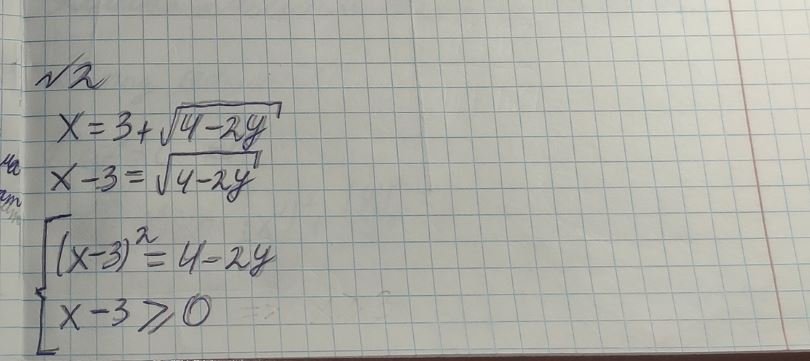 №2
x = 3 + √(4-2y)
x - 3 = √(4-2y)
(x-3)² = 4-2y
x - 3 ⩾ 0